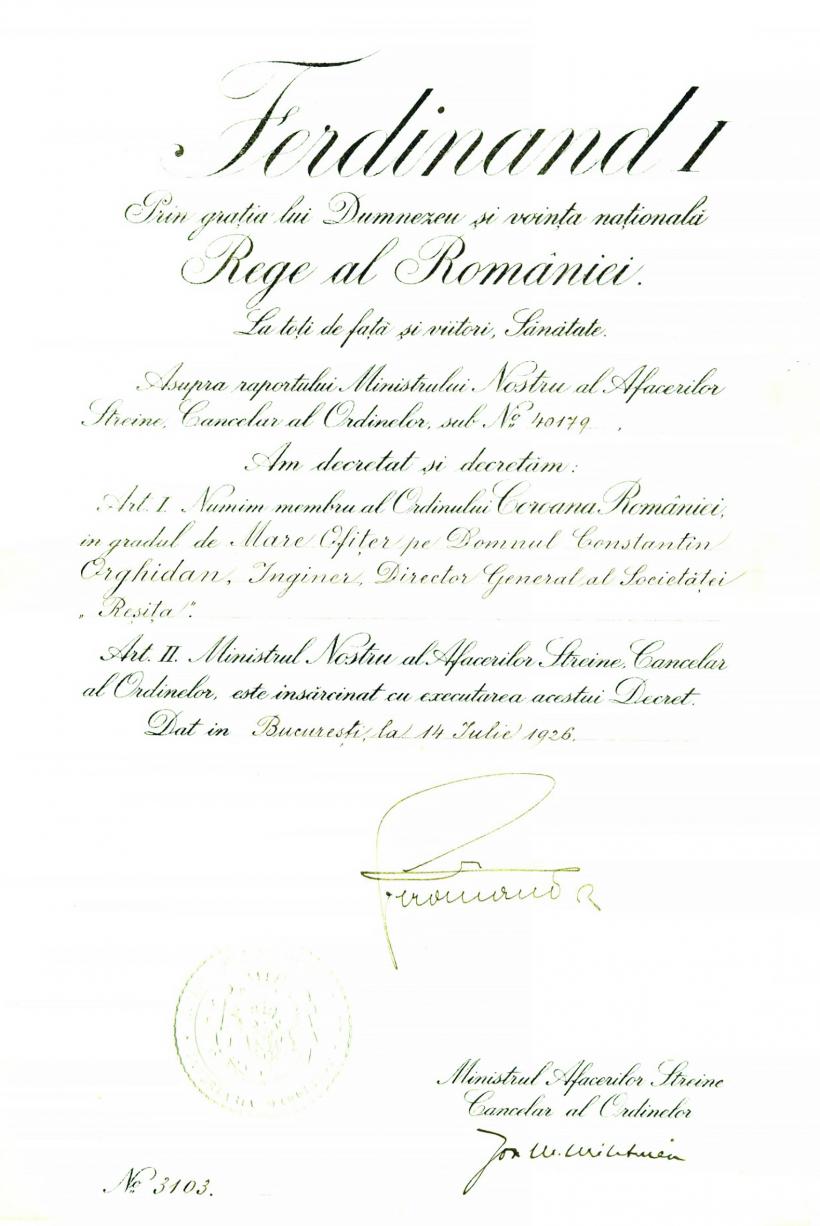 Ferdinand I
Prin grația lui Dumnezeu și voința națională
Rege al României.
La toți de față și viitori, Sănătate.
Asupra raportului Ministrului Nostru al Afacerilor
Streine, Cancelar al Ordinelor, sub No 40179,
Am decretat și decretăm:
Art. I. Numim membru al Ordinului Coroana României,
in gradul de Mare Ofițer pe Domnul Constantin
Orghidan, Inginer, Director General al Societăței
„Reșița".
Art. II. Ministrul Nostru al Afacerilor Streine, Cancelar
al Ordinelor, este însărcinat cu executarea acestui Decret.
Dat in București, la 14 Iulie 1926.
Ferdinand R
Ministrul Afacerilor Streine
Cancelar al Ordinelor
No 3103.